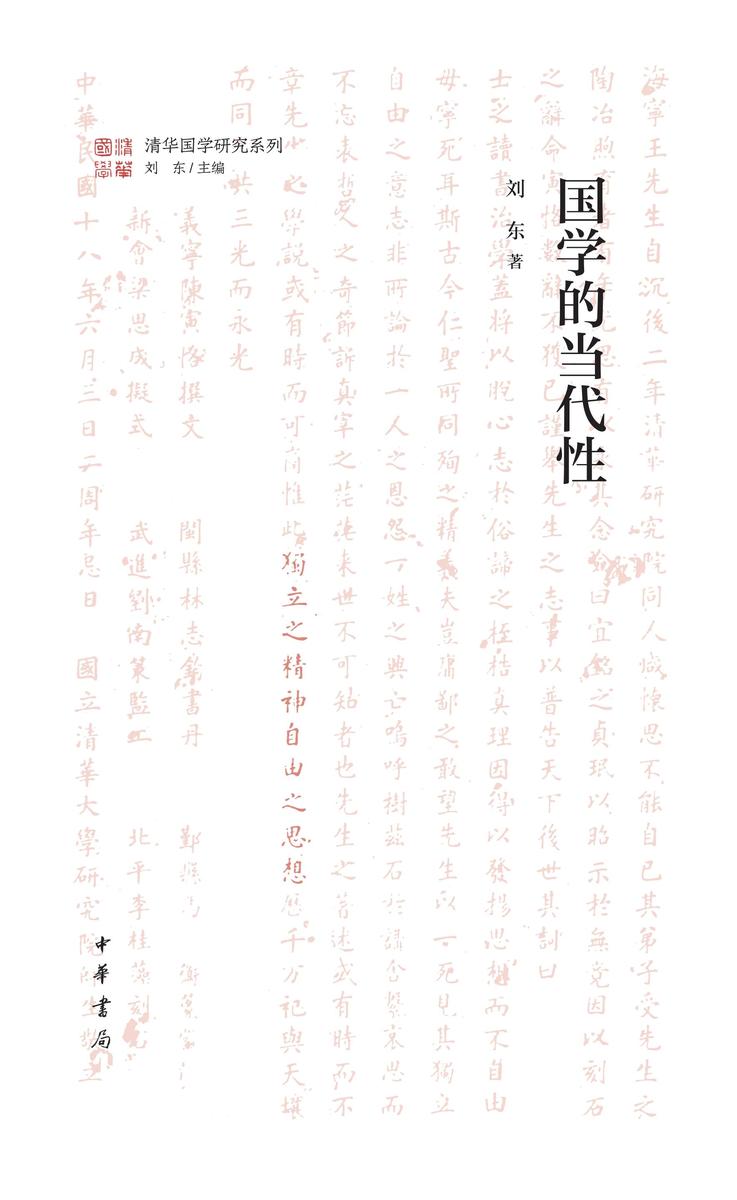 国学的当代性
刘 东 著
清華國學
清华国学研究系列
刘 东/主编
中華書局
海寧王先生自沉後二年清華研究院同人咸懷思不能自已其弟子受先生之
陶冶煦育者有年尤思有以永其念僉曰宜銘之貞珉以昭示於無竟因以刻石
之辭命寅恪數辭不獲已謹舉先生之志事以普告天下後世其詞曰
士之讀書治學蓋將以脫心志於俗諦之桎梏真理因得以發揚思想而不自由
毋寧死耳斯古今仁聖所同殉之精義夫豈庸鄙之敢望先生以一死見其獨立
自由之意志非所論於一人之恩怨一姓之興亡嗚呼樹茲石於講舍繫哀思而
不忘表哲人之奇節訴真宰之茫茫來世不可知者也先生之著述或有時而不
章先生之學說或有時而可商惟此獨立之精神自由之思想歷千万祀與天壤
而同 共三光而永光
義寧陳寅恪撰文 閩縣林志鈞書丹 鄞縣馬 衡篆額
新會梁思成擬式 武進劉南策監工 北平李桂藻刻石
中華民國十八年六月三日二周年忌日 國立清華大學研究院師生敬立